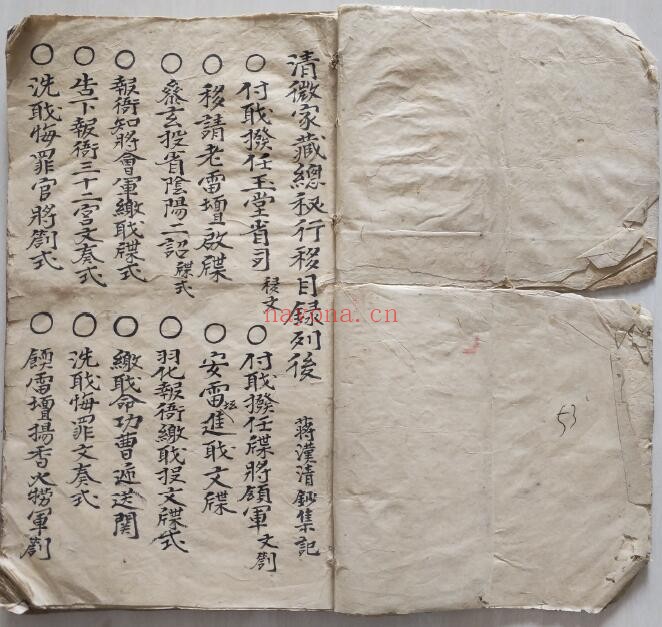 清微家藏總秘行移目録列後
蔣漢清鈔集記
○付职撥任玉堂省司 移文
○付职撥任牒將領軍 文劄
○移請老雷壇啟牒
○安雷坛進职文牒
○叅玄投省陰陽二詔 牒式
○羽化報衙繳职投文牒式
○報衙知將會軍繳职牒式
○繳职命功曹逓送関
○告下報衙三十二宮文奏式
○洗职悔罪文奏式
○洗职悔罪官將劄式
○雷壇揚香火犒軍劄
53
nayona.cn